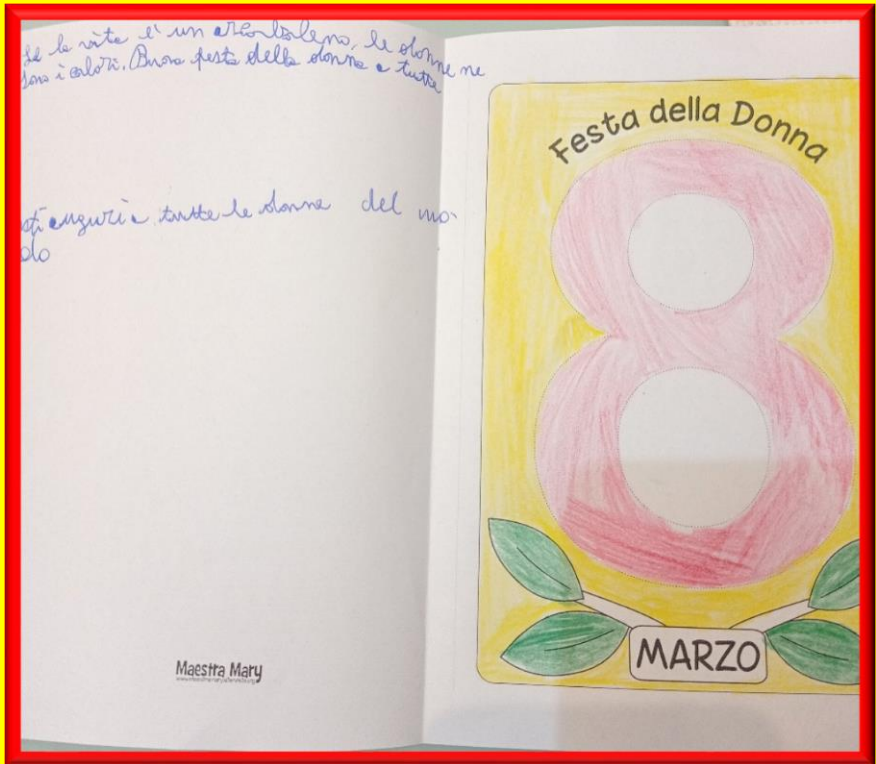 Se la vita è un arcobaleno, le donne ne
sono i colori. Buona festa della donna a tutte
sti auguri a tutte le donne del mo-
do
Maestra Mary
Festa della Donna
8
MARZO